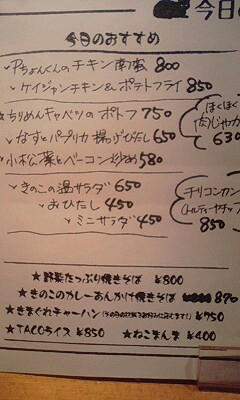 今日
今日のおすすめ
Pちょんくんのチキン南蛮 800
ケイジャンチキン&ポテトフライ 850
ちりめんキャベツのポトフ 750
なすとパプリカ揚げびたし 650
小松菜とベーコン炒め 580
きのこの温サラダ 650
おひたし 450
ミニサラダ 450
ほくほく
肉じゃが
630
チリコンカン
(トルティーヤチップ)
850
★野菜たっぷり焼きそば ¥800
★きのこのカレーあんかけ焼きそば 870
★きまぐれチャーハン ¥750
★TACOライス ¥850 ★ねこまんま ¥400